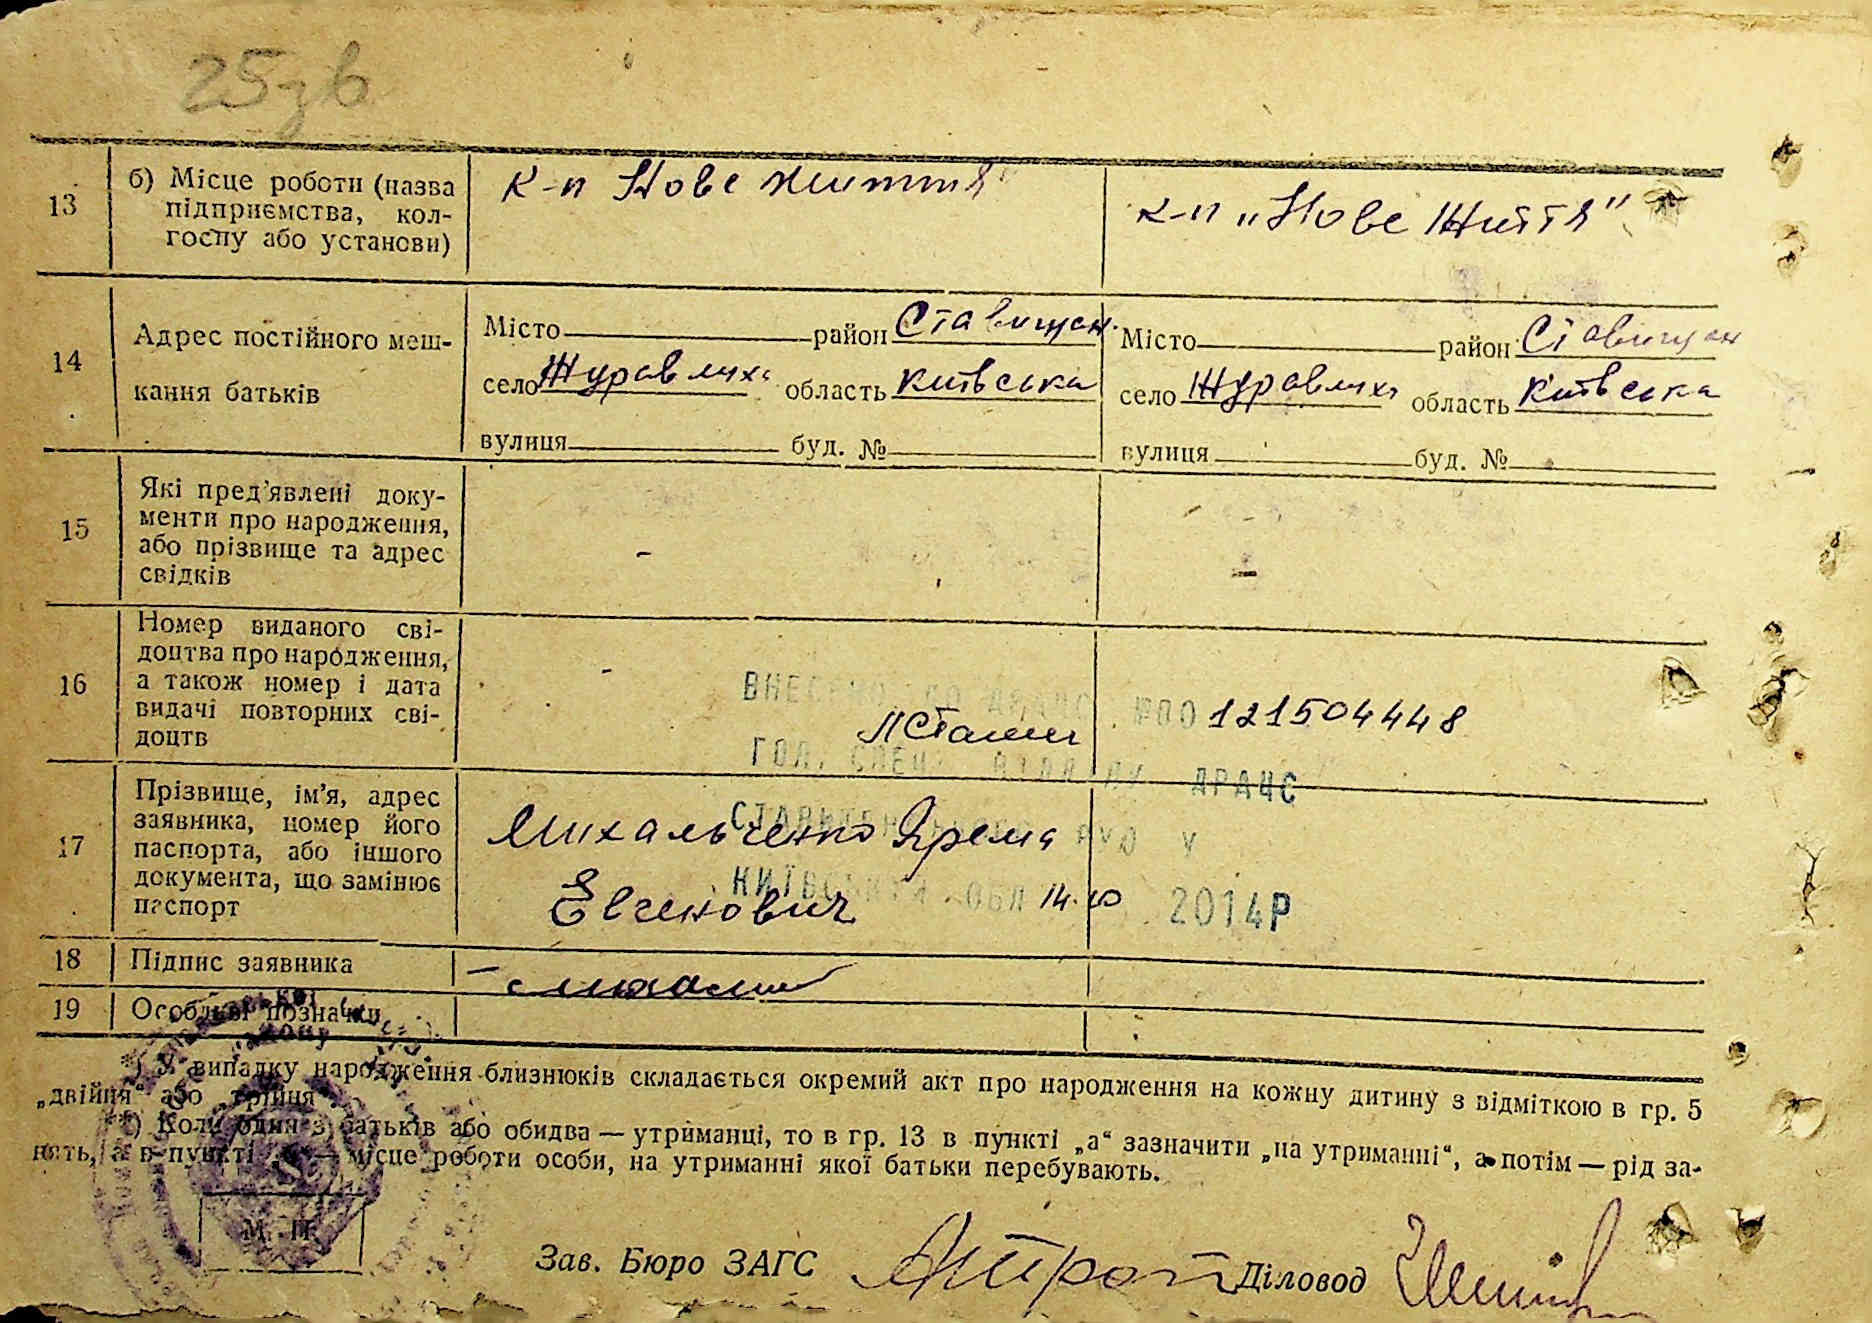 25зв
13
б) Місце роботи (назва
підприємства, кол-
госпу або установи)
к-п Нове життя
к-п „Нове Життя"
14
Адрес постійного меш-
кання батьків
Місто район Ставищан.
село Журавлиха область Київська
вулиця буд. №
Місто район Ставищан
село Журавлиха область Київська
вулиця буд. №
15
Які пред'явлені доку-
менти про народження,
або прізвище та адрес
свідків
-
-
16
Номер виданого сві-
доцтва про народження,
а також номер і дата
видачі повторних сві-
доцтв
-
ВНЕСЕНО ДО ДРАЦС №00 121504448
ГОЛ. СПЕЦ. ВІДДІЛУ ДРАЦС
СТАВИЩЕНСЬКОГО РУЮ У
КИЇВСЬКІЙ ОБЛ 14.10 2014Р
17
Прізвище, ім'я, адрес
заявника, номер його
паспорта, або іншого
документа, що замінює
паспорт
Михальченко Ярема
Евгенович
18
Підпис заявника
19
Особливі позначки
*) У випадку народження близнюків складається окремий акт про народження на кожну дитину з відміткою в гр. 5
„двійня" або „трійня".
**) Коли один з батьків або обидва — утриманці, то в гр. 13 в пункті „а" зазначити „на утриманні", а потім — рід за-
нять, а в пункті — місце роботи особи, на утриманні якої батьки перебувають.
М. П.
Зав. Бюро ЗАГС
Діловод